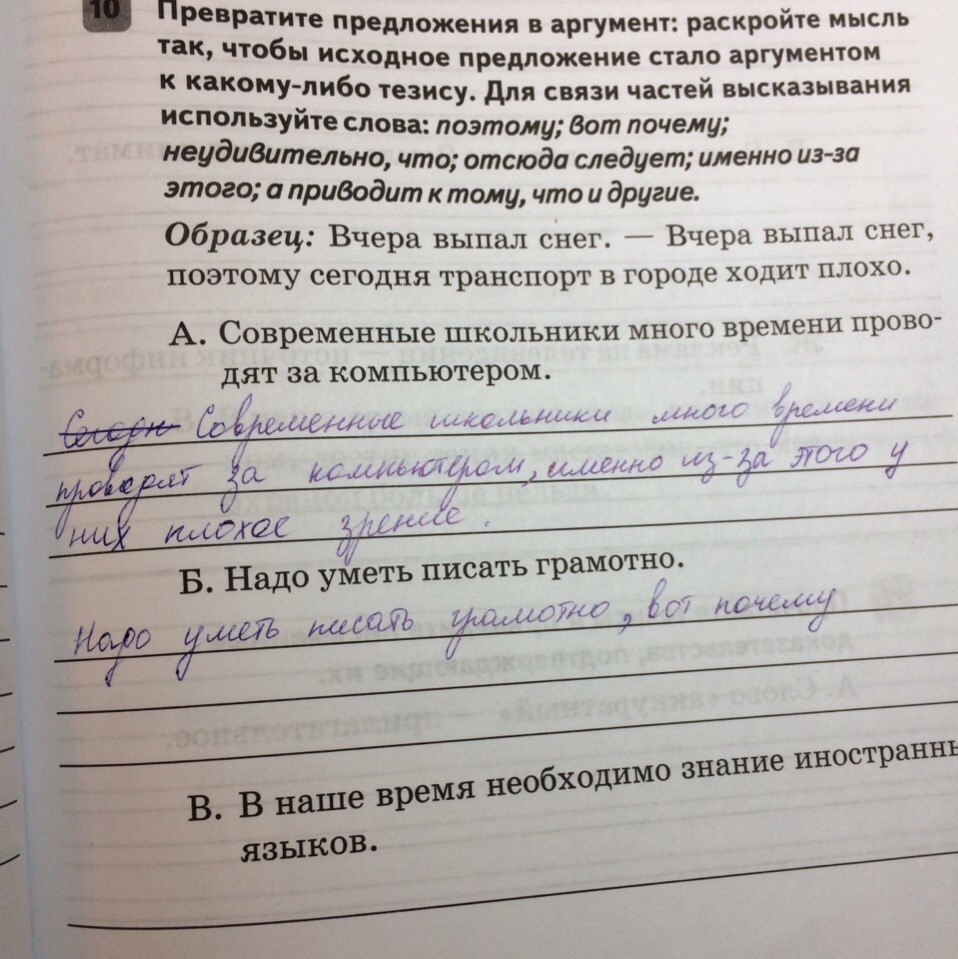 10 Превратите предложения в аргумент: раскройте мысль
так, чтобы исходное предложение стало аргументом
к какому-либо тезису. Для связи частей высказывания
используйте слова: поэтому; вот почему;
неудивительно, что; отсюда следует; именно из-за
этого; а приводит к тому, что и другие.
Образец: Вчера выпал снег. — Вчера выпал снег,
поэтому сегодня транспорт в городе ходит плохо.
А. Современные школьники много времени прово-
дят за компьютером.
Современные школьники много времени
проводят за компьютером, именно из-за этого у
них плохое зрение.
Б. Надо уметь писать грамотно.
Надо уметь писать грамотно, вот почему
В. В наше время необходимо знание иностранны
языков.